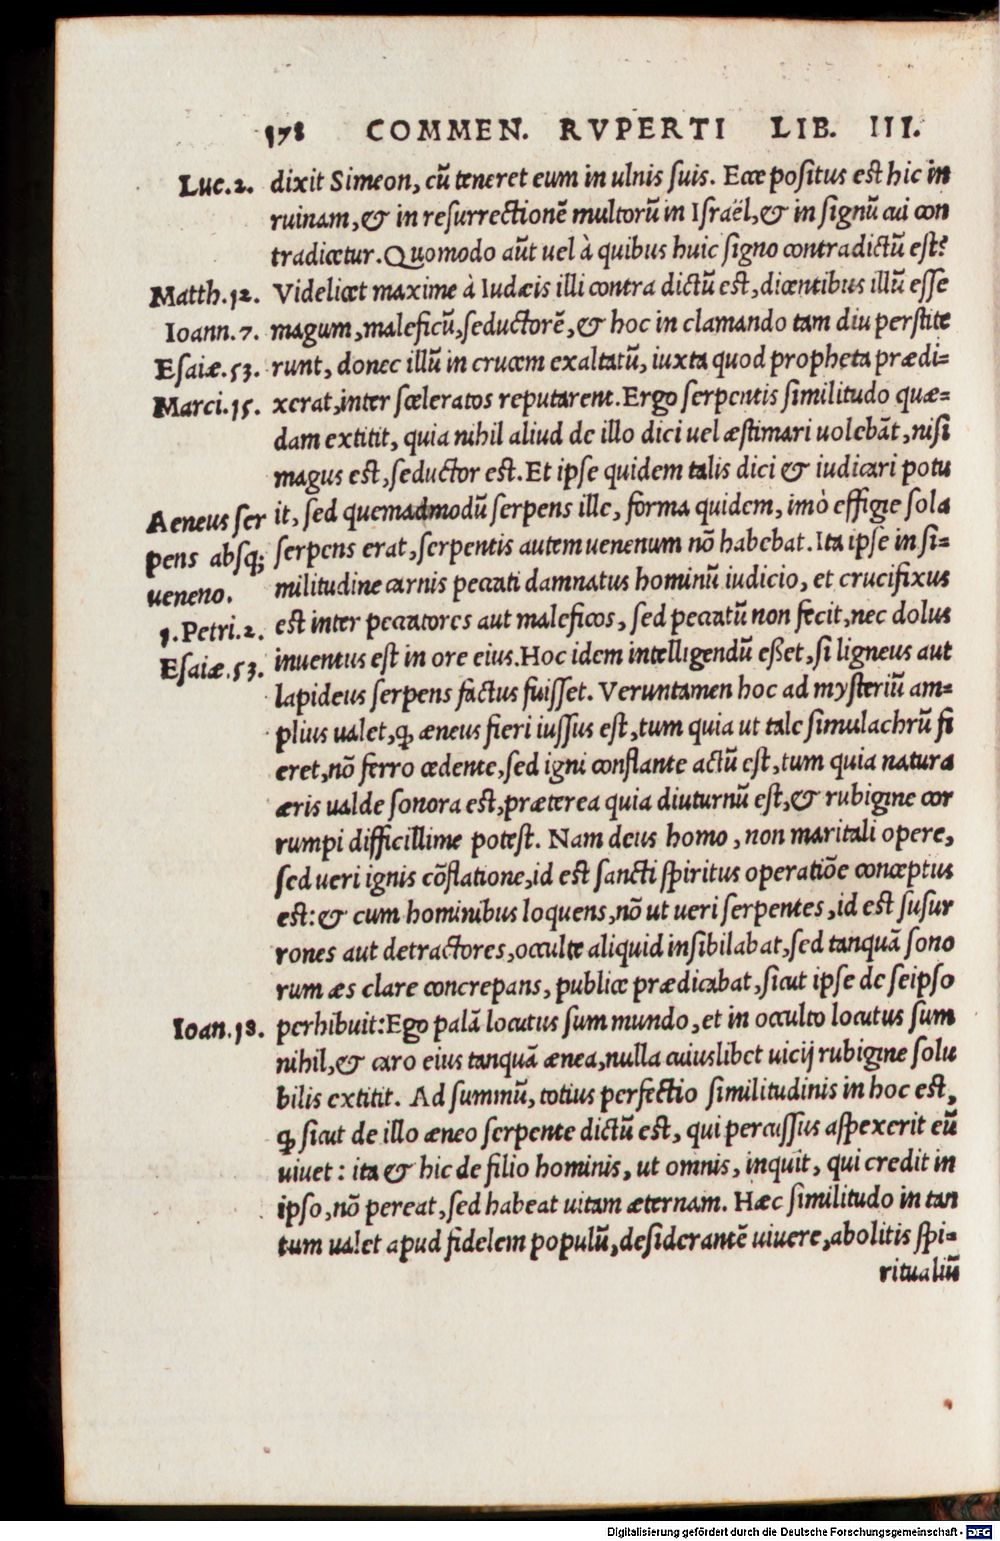 178 COMMEN. RVPERTI LIB. III.
Luc.2. dixit Simeon, cũ teneret eum in ulnis suis. Ecce positus est hic in
ruinam, & in resurrectionẽ multorũ in Israël, & in signũ cui con
tradicetur. Quomodo aũt uel à quibus huic signo contradictũ est?
Matth.12. Videlicet maxime à Iudæis illi contra dictũ est, dicentibus illũ esse
Ioann.7. magum, maleficũ, seductorẽ, & hoc in clamando tam diu perstite
Esaiæ.53. runt, donec illũ in crucem exaltatũ, iuxta quod propheta prædi=
Marci.15. xerat, inter sceleratos reputarent. Ergo serpentis similitudo quæ=
dam extitit, quia nihil aliud de illo dici uel æstimari uolebãt, nisi
magus est, seductor est. Et ipse quidem talis dici & iudicari potu
Aeneus ser it, sed quemadmodũ serpens ille, forma quidem, imò effigie sola
pens absq; serpens erat, serpentis autem uenenum nõ habebat. Ita ipse in si=
ueneno. militudine carnis peccati damnatus hominũ iudicio, et crucifixus
1.Petri.2. est inter peccatores aut maleficos, sed peccatũ non fecit, nec dolus
Esaiæ.53. inuentus est in ore eius. Hoc idem intelligendũ eßet, si ligneus aut
lapideus serpens factus fuisset. Veruntamen hoc ad mysteriũ am=
plius ualet, ꝙ æneus fieri iussus est, tum quia ut tale simulachrũ fi
eret, nõ ferro cedente, sed igni conflante actũ est, tum quia natura
æris ualde sonora est, præterea quia diuturnũ est, & rubigine cor
rumpi difficillime potest. Nam deus homo, non maritali opere,
sed ueri ignis cõflatione, id est sancti spiritus operatiõe conceptus
est: & cum hominibus loquens, nõ ut ueri serpentes, id est susur
rones aut detractores, occulte aliquid insibilabat, sed tanquã sono
rum æs clare concrepans, publice prædicabat, sicut ipse de seipso
Ioan.18. perhibuit: Ego palã locutus sum mundo, et in occulto locutus sum
nihil, & caro eius tanquã ænea, nulla cuiuslibet uicij rubigine solu
bilis extitit. Ad summũ, totius perfectio similitudinis in hoc est,
ꝙ sicut de illo æneo serpente dictũ est, qui percussus aspexerit eũ
uiuet: ita & hic de filio hominis, ut omnis, inquit, qui credit in
ipso, nõ pereat, sed habeat uitam æternam. Hæc similitudo in tan
tum ualet apud fidelem populũ, desiderantẽ uiuere, abolitis spi=
ritualiũ
Digitalisierung gefördert durch die Deutsche Forschungsgemeinschaft - DFG